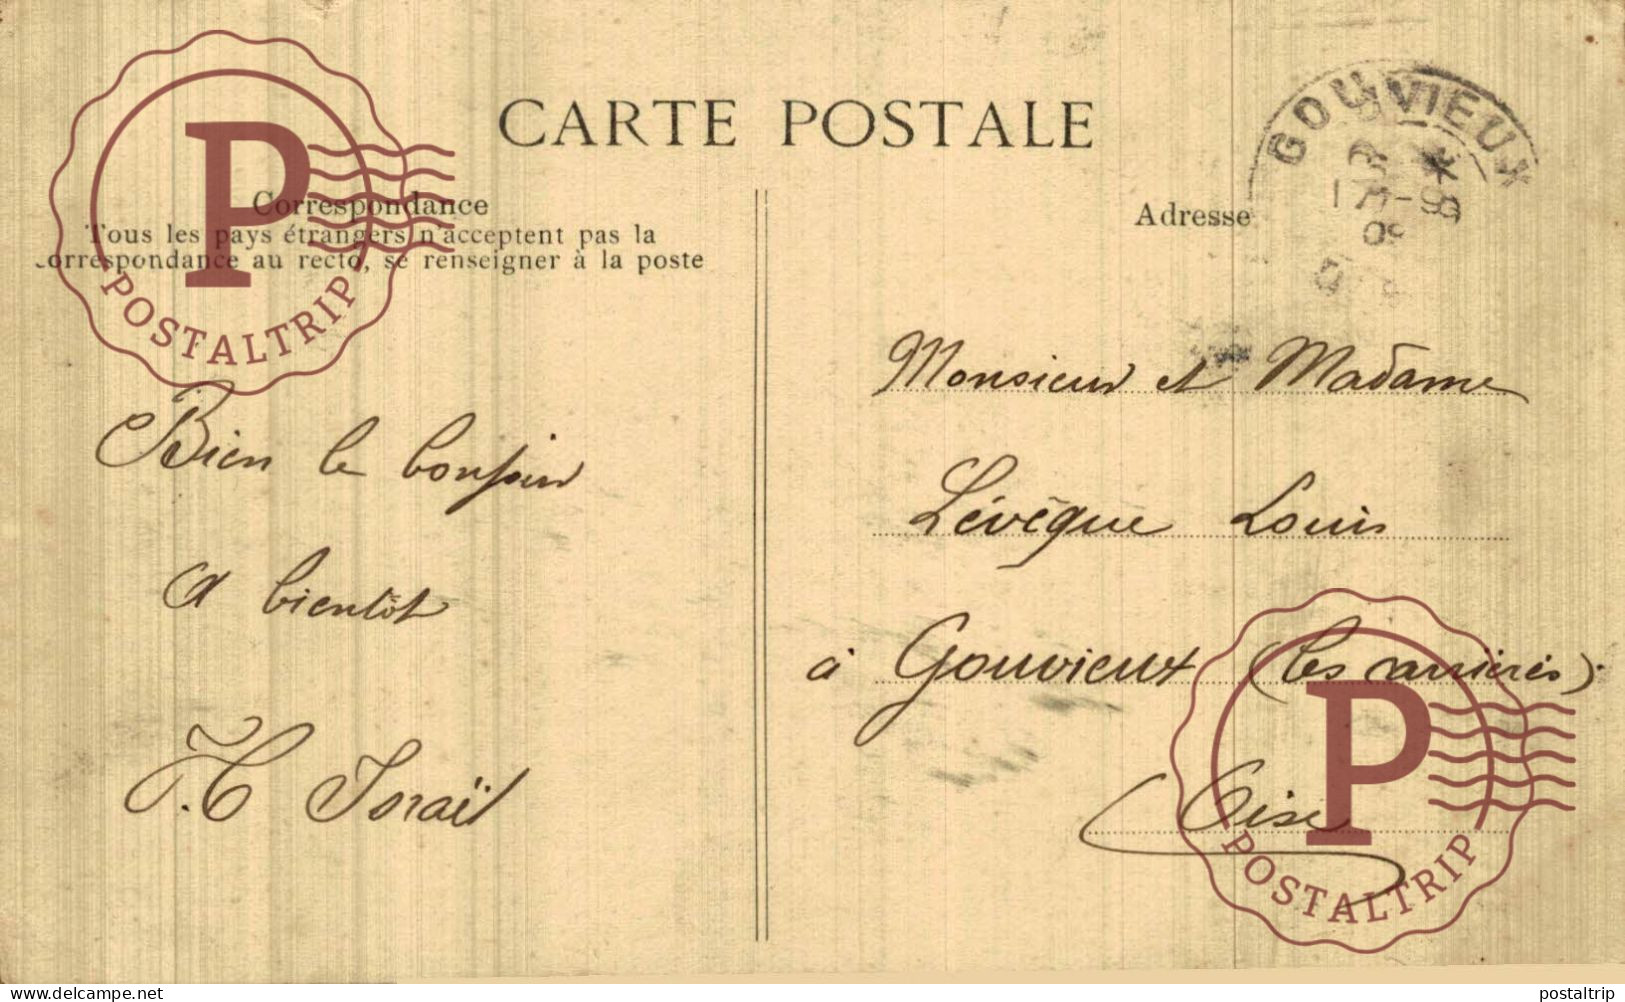 CARTE POSTALE
Correspondance
Tous les pays étrangers n'acceptent pas la
correspondance au recto, se renseigner à la poste
Bien le bonjour
A bientôt
Adresse
GOUVIEUX
Monsieur et Madame
Lévêque Louis
à Gouvieux (les carrières).
Oise
P
POSTALTRIP
P
POSTALTRIP
www.delcampe.net
postaltrip